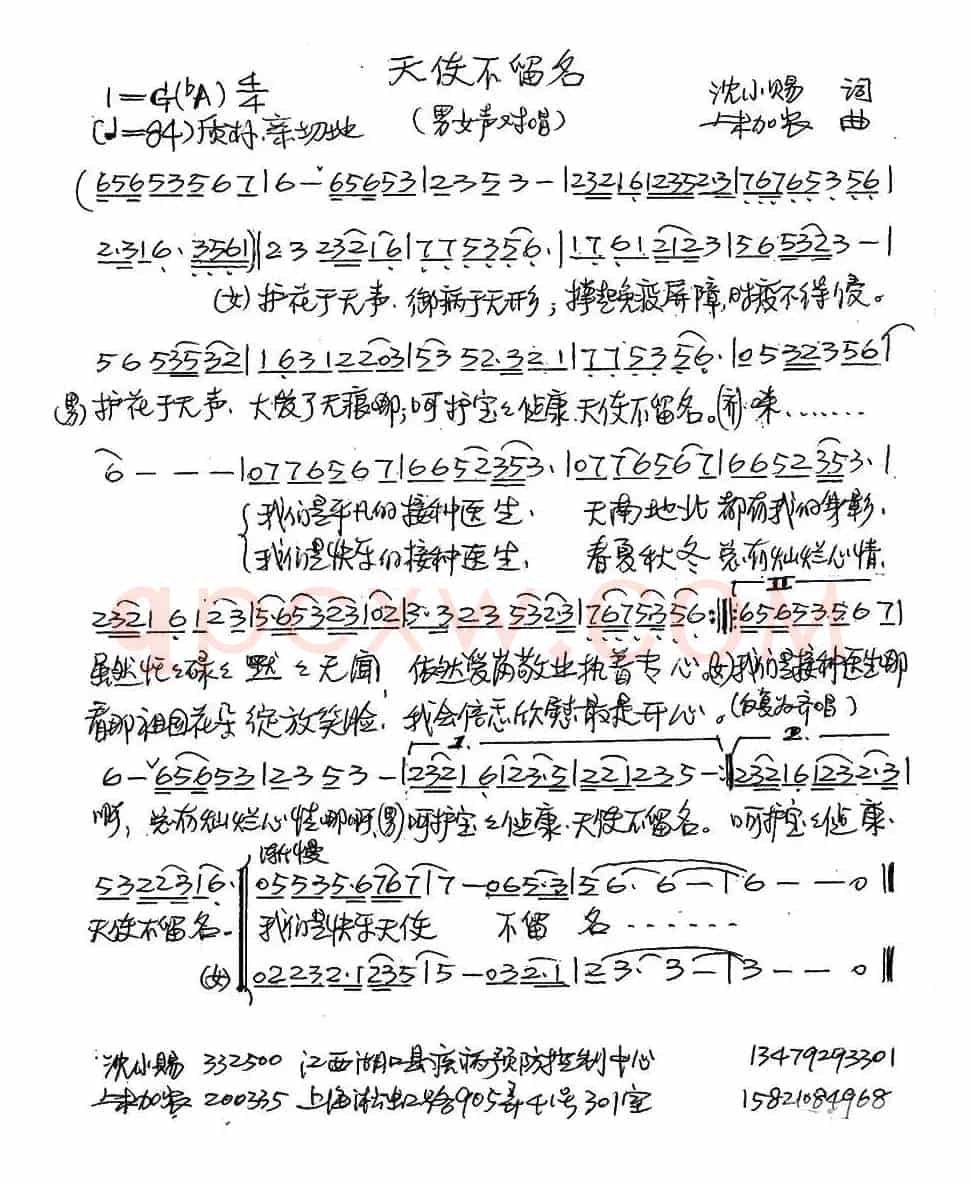 天使不留名
(男女声对唱)
1=G(bA) 4/4
(♩=84)质朴.亲切地
沈小赐 词
加农 曲
(656535671|6-656531|2353-|232161235231|767653561|
2·316·3561)|23232161|7753561·|1761212 3|5653231-|
(女)护花于无声.御病于无形;撑起免疫屏障,时疫不得侵。
56535321|163122031|5352·321|7753561·|05323561|
(男)护花于无声、大爱了无痕哪;呵护宝々健康.天使不留名。(齐)咪.......
6---|0776567|6652353·|0776567|6652353·|
我们是平凡的接种医生、 天南地北 都有我的身影、
我们是快乐的接种医生、 春夏秋冬 总有灿烂心情,
qpcxw.com
II
232161231|5·65323|02|3·32353231|7675356:‖:656535671|
虽然忙々碌々 默々无闻, 依然爱岗敬业执着专心。(女)我们是接种医生哪
看那祖国花朵 绽放笑脸, 我会倍感欣慰最是开心。(反复为齐唱)
1. 2.
6-656531|2353-|2321612351|221235-:‖232161232·31|
啊, 总有灿烂心情哪啊,(男)呵护宝々健康.天使不留名。呵护宝々健康.
渐慢
53223161·|05535·6767|7-065·3|56·6-|6--0‖
天使不留名. 我们是快乐天使 不留 名......
(女) 02232·1235|5-032·1|23·3-|3--0‖
沈小赐 332500 江西湖口县疾病预防控制中心 13479293301
加农 200335 上海淞虹路905弄41号301室 15821084968